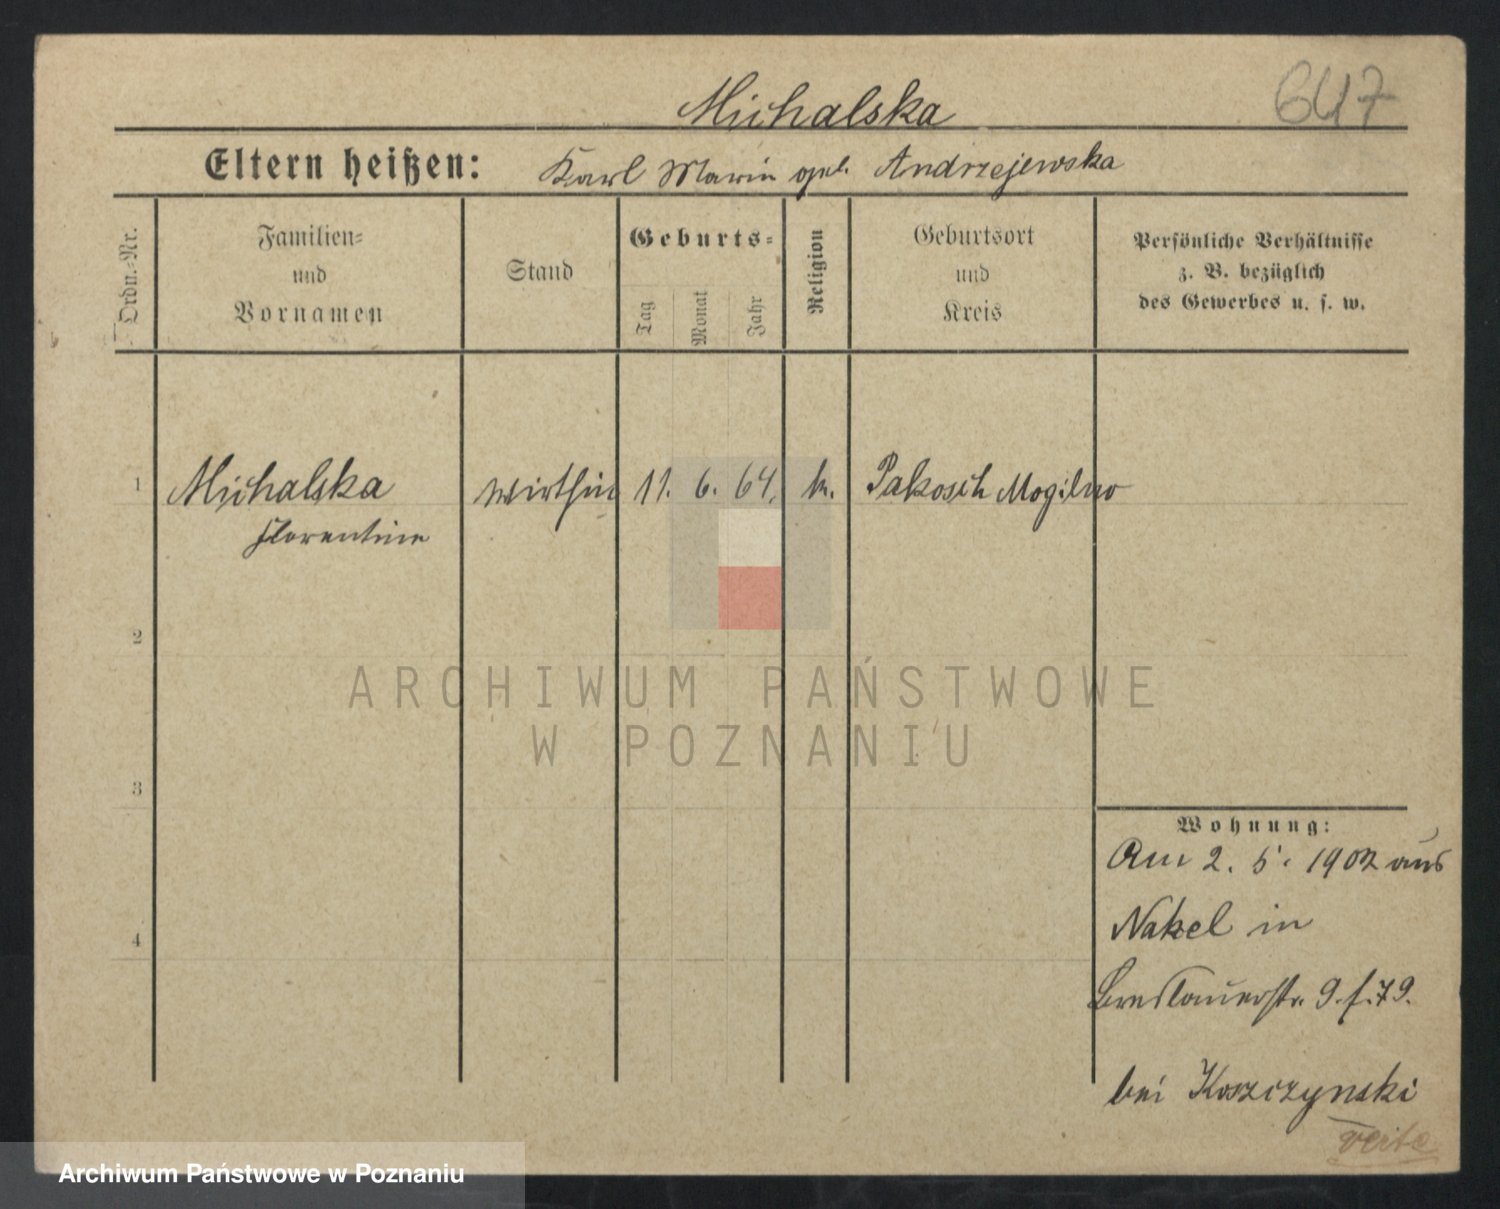 Michalska
647
Eltern heißen: Karl Marie geb. Andrzejewska
Ordn.-Nr.
Familien- und Vornamen
Stand
Geburts-
Tag
Monat
Jahr
Religion
Geburtsort und Kreis
Persönliche Verhältnisse
z. B. bezüglich
des Gewerbes u. s. w.
1 Michalska Wirthin 11. 6. 64. k. Pakosch Mogilno
Florentine
2
3
4
ARCHIWUM PAŃSTWOWE
W POZNANIU
Wohnung:
Am 2. 5. 1902 aus
Nakel in
Breslauerstr. 9. f. 79.
bei Koszczynski
verte
Archiwum Państwowe w Poznaniu